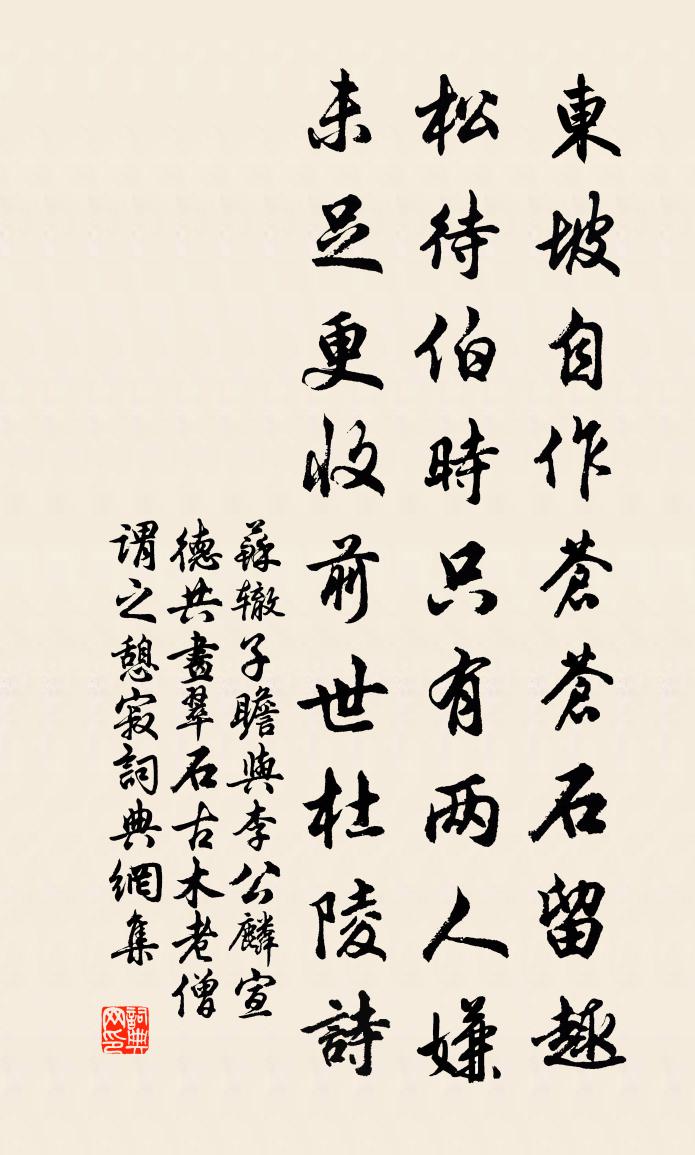 東坡自作蒼蒼石留趣
松待伯時只有两人嫌
未足更收前世杜陵詩
蘇辙子瞻與李公麟宣
德共畫翠石古木老僧
謂之憩寂詞典網集
詞典
网印